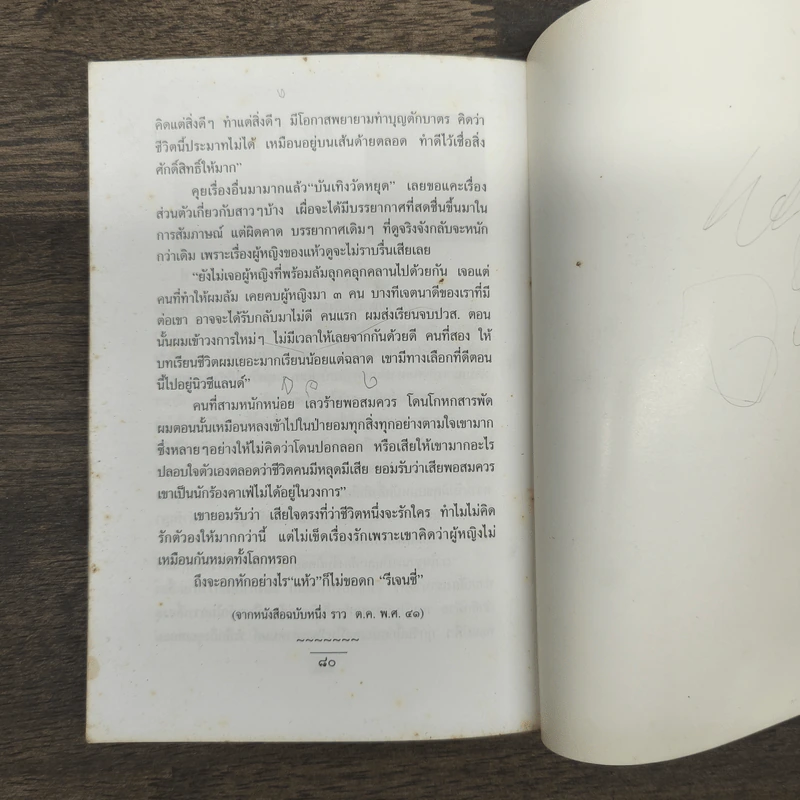 คิดแต่สิ่งดีๆ ทำแต่สิ่งดีๆ มีโอกาสพยายามทำบุญตักบาตร คิดว่า
ชีวิตนี้ประมาทไม่ได้ เหมือนอยู่บนเส้นด้ายตลอด ทำดีไว้เชื่อสิ่ง
ศักดิ์สิทธิ์ให้มาก”
คุยเรื่องอื่นมามากแล้ว“บันเทิงวัดหยุด” เลยขอแคะเรื่อง
ส่วนตัวเกี่ยวกับสาวๆบ้าง เผื่อจะได้มีบรรยากาศที่สดชื่นขึ้นมาใน
การสัมภาษณ์ แต่ผิดคาด บรรยากาศเดิมๆ ที่ดูจริงจังกลับจะหนัก
กว่าเดิม เพราะเรื่องผู้หญิงของแห้วดูจะไม่ราบรื่นเสียเลย
“ยังไม่เจอผู้หญิงที่พร้อมล้มลุกคลุกคลานไปด้วยกัน เจอแต่
คนที่ทำให้ผมล้ม เคยคบผู้หญิงมา ๓ คน บางทีเจตนาดีของเราที่มี
ต่อเขา อาจจะได้รับกลับมาไม่ดี คนแรก ผมส่งเรียนจบปวส. ตอน
นั้นผมเข้าวงการใหม่ๆ ไม่มีเวลาให้เลยจากกันด้วยดี คนที่สอง ให้
บทเรียนชีวิตผมเยอะมากเรียนน้อยแต่ฉลาด เขามีทางเลือกที่ดีตอน
นี้ไปอยู่นิวซีแลนด์”
คนที่สามหนักหน่อย เลวร้ายพอสมควร โดนโกหกสารพัด
ผมตอนนั้นเหมือนหลงเข้าไปในป่ายอมทุกสิ่งทุกอย่างตามใจเขามาก
ซึ่งหลายๆอย่างให้ไม่คิดว่าโดนปอกลอก หรือเสียให้เขามากอะไร
ปลอบใจตัวเองตลอดว่าชีวิตคนมีหลุดมีเสีย ยอมรับว่าเสียพอสมควร
เขาเป็นนักร้องคาเฟ่ไม่ได้อยู่ในวงการ”
เขายอมรับว่า เสียใจตรงที่ว่าชีวิตหนึ่งจะรักใคร ทำไมไม่คิด
รักตัวองให้มากกว่านี้ แต่ไม่เข็ดเรื่องรักเพราะเขาคิดว่าผู้หญิงไม่
เหมือนกันหมดทั้งโลกหรอก
ถึงจะอกหักอย่างไร“แห้ว”ก็ไม่ขอดก “รีเจนซี่”
(จากหนังสือฉบับหนึ่ง ราว ต.ค. พ.ศ. ๔๑)
~~~~~~~
๘๐